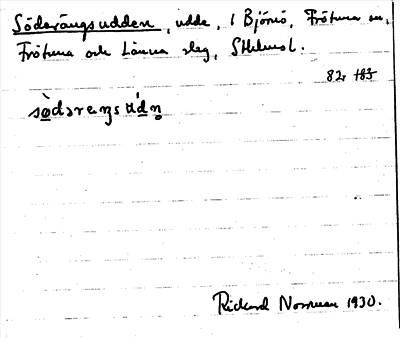 Söderängsudden, udde, i Björnö, Frötuna sn,
Frötuna och Länna slg, Sthlms l.
82, 183
sòdərɛŋsúdn̥
Rickard Norrman 1930.